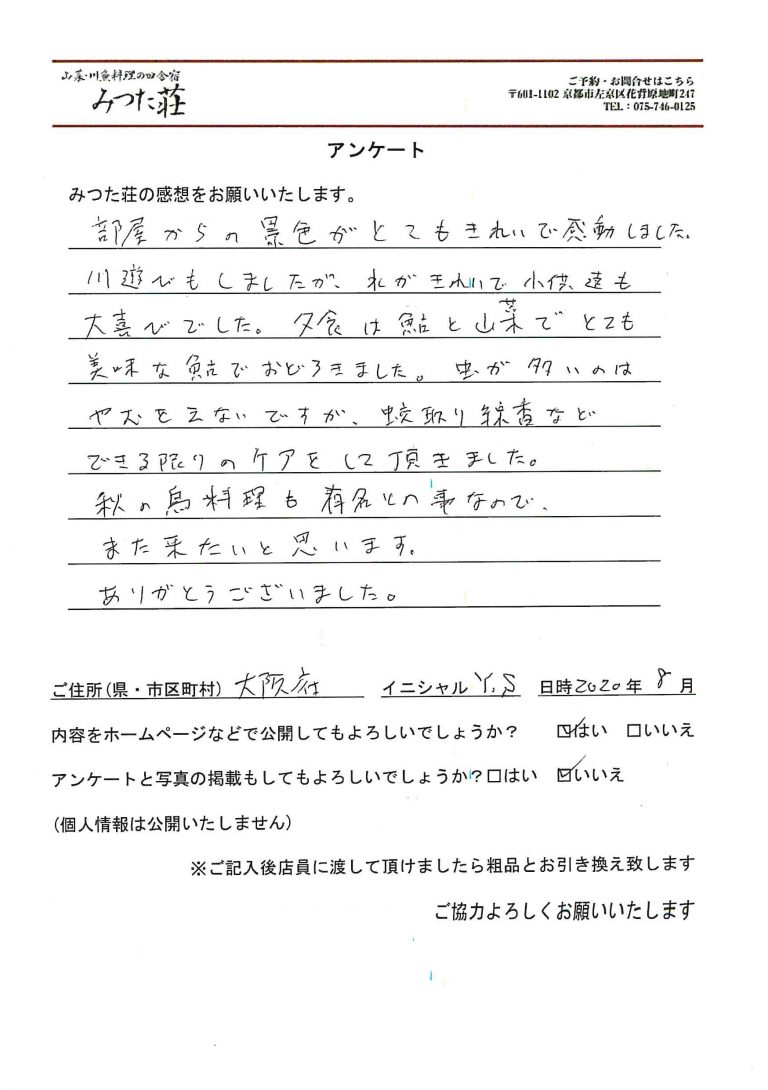 山菜・川魚料理の田舎宿
みつた荘
ご予約・お問合せはこちら
〒601-1102 京都市左京区花背原地町247
TEL：075-746-0125
アンケート
みつた荘の感想をお願いいたします。
部屋からの景色がとてもきれいで感動しました。
川遊びもしましたが、水がきれいで小供達も
大喜びでした。夕食は鮎と山菜でとても
美味な鮎でおどろきました。虫が多いのは
やむをえないですが、蚊取り線香など
できる限りのケアをして頂きました。
秋の鳥料理も有名との事なので、
また来たいと思います。
ありがとうございました。
ご住所(県・市区町村) 大阪府 イニシャル Y.S 日時2020年 8月
内容をホームページなどで公開してもよろしいでしょうか？ ☑はい □いいえ
アンケートと写真の掲載もしてもよろしいでしょうか？□はい ☑いいえ
(個人情報は公開いたしません)
※ご記入後店員に渡して頂けましたら粗品とお引き換え致します
ご協力よろしくお願いいたします